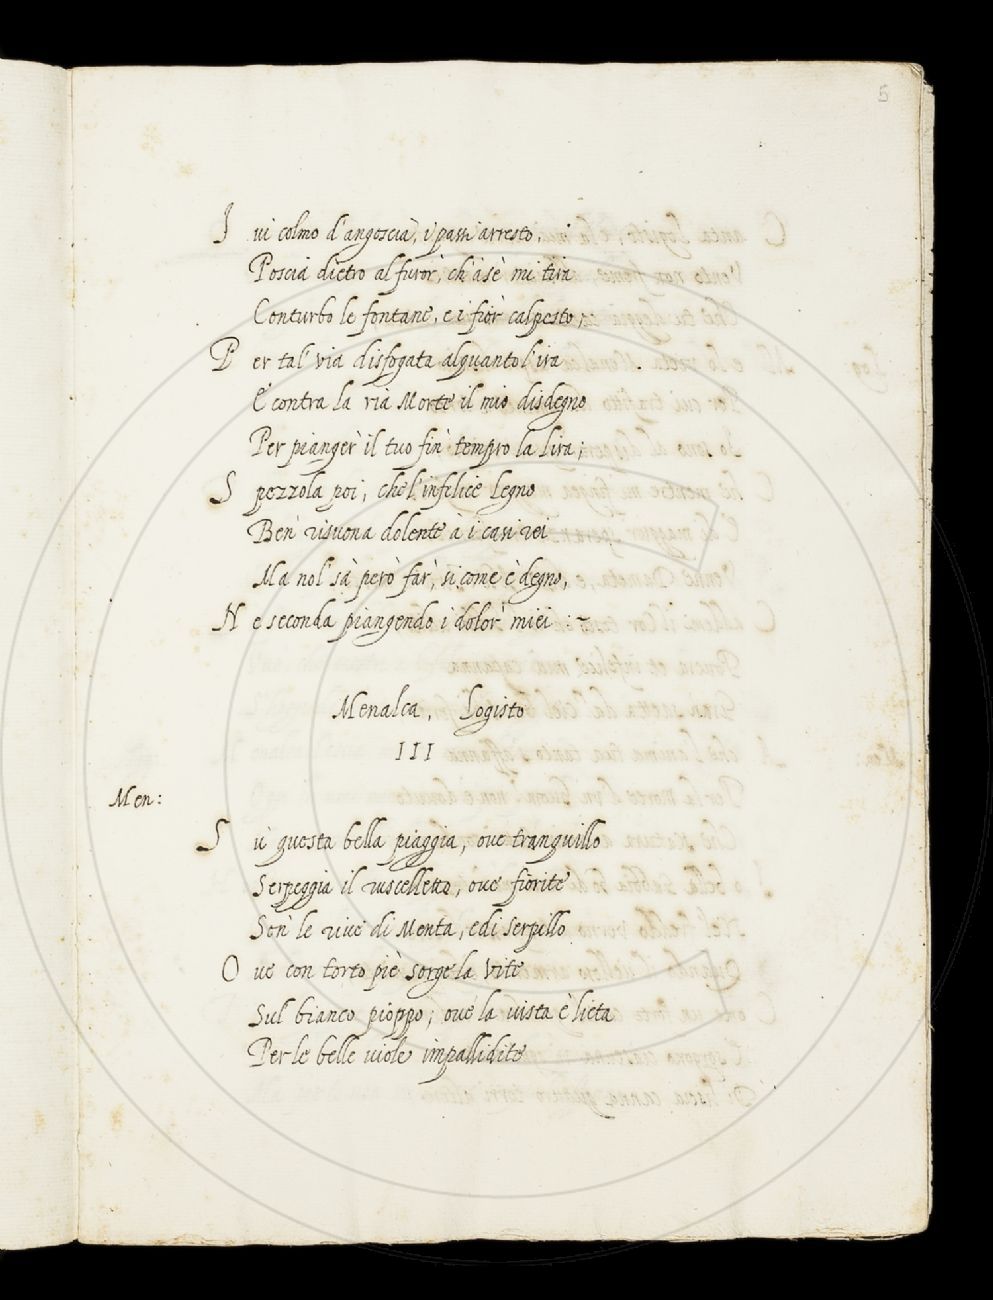 5
Ivi colmo d'angoscia, i passi arresto,
Poscia dietro al furor, ch'à sè mi tira
Conturbo le fontane, e i fior calpesto;
Per tal' via disfogata alquanto l'ira
E contra la ria Morte il mio disdegno
Per pianger' il tuo fin' tempro la Lira;
Spezzola poi, che l'infelice Legno
Ben' risuona dolente à i casi rei
Ma nol' sà però far', si come è degno,
Ne seconda piangendo i dolor' miei :~
Menalca, Logisto
III
Men:
Sù questa bella piaggia, ove tranquillo
Serpeggia il ruscelletto, ove fiorite
Son' le rive di Menta, e di Serpillo
Ove con torto piè sorge la Vite
Sul bianco pioppo; ove la vista è lieta
Per le belle viole impallidite